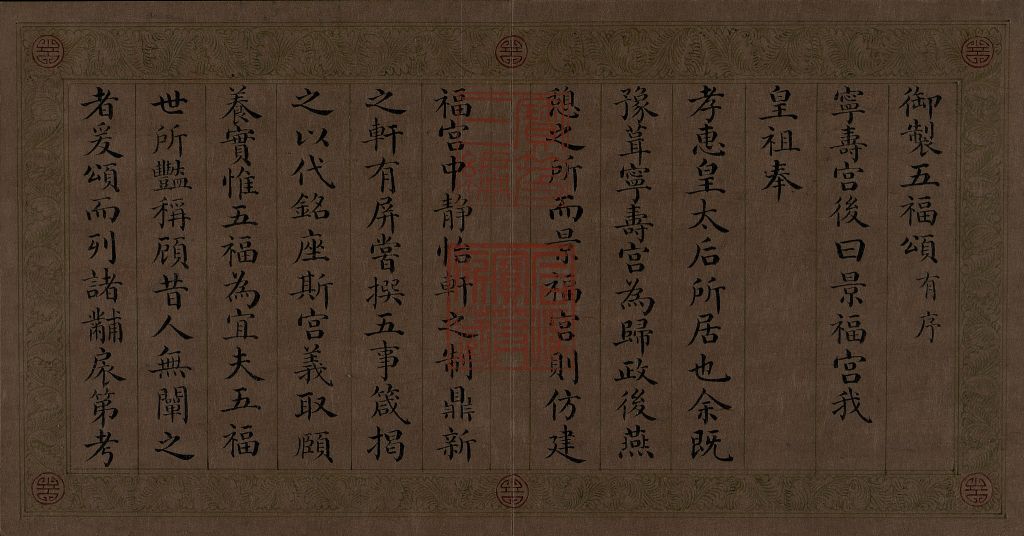 御製五福頌有序
寧壽宮後曰景福宮我
皇祖奉
孝惠皇太后所居也余既
豫葺寧壽宮為歸政後燕
憩之所而景福宮則仿建
福宮中靜怡軒之制鼎新
之軒有屏嘗撰五事箴揭
之以代銘座斯宮義取頤
養實惟五福為宜夫五福
世所豔稱顧昔人無闡之
者爰頌而列諸黼扆第考